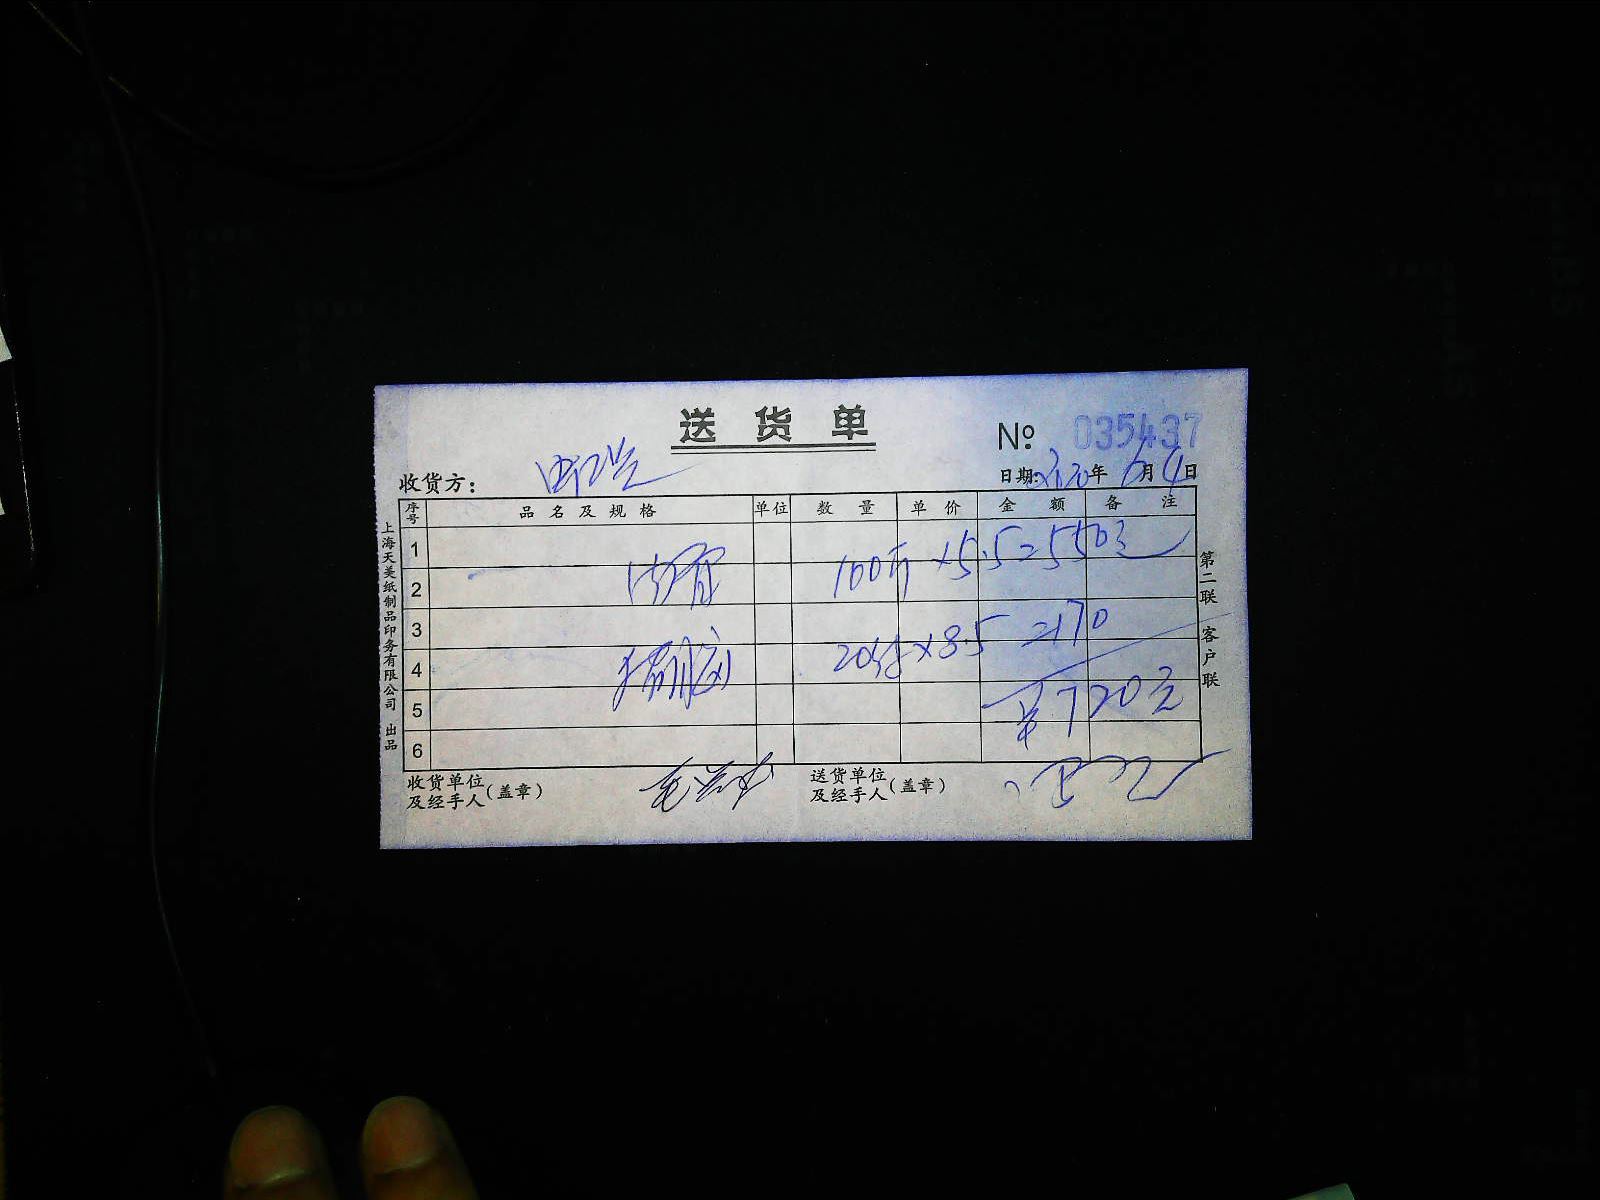 送货单
№ 035437
收货方：
日期：2020年6月4日
序号 品名及规格 单位 数量 单价 金额 备注
1
2 100斤 ×5.5=550元
3
4 ×8.5 =170
5 ¥720元
6
收货单位及经手人（盖章）
送货单位及经手人（盖章）
上海天美纸制品印务有限公司 出品
第二联 客户联